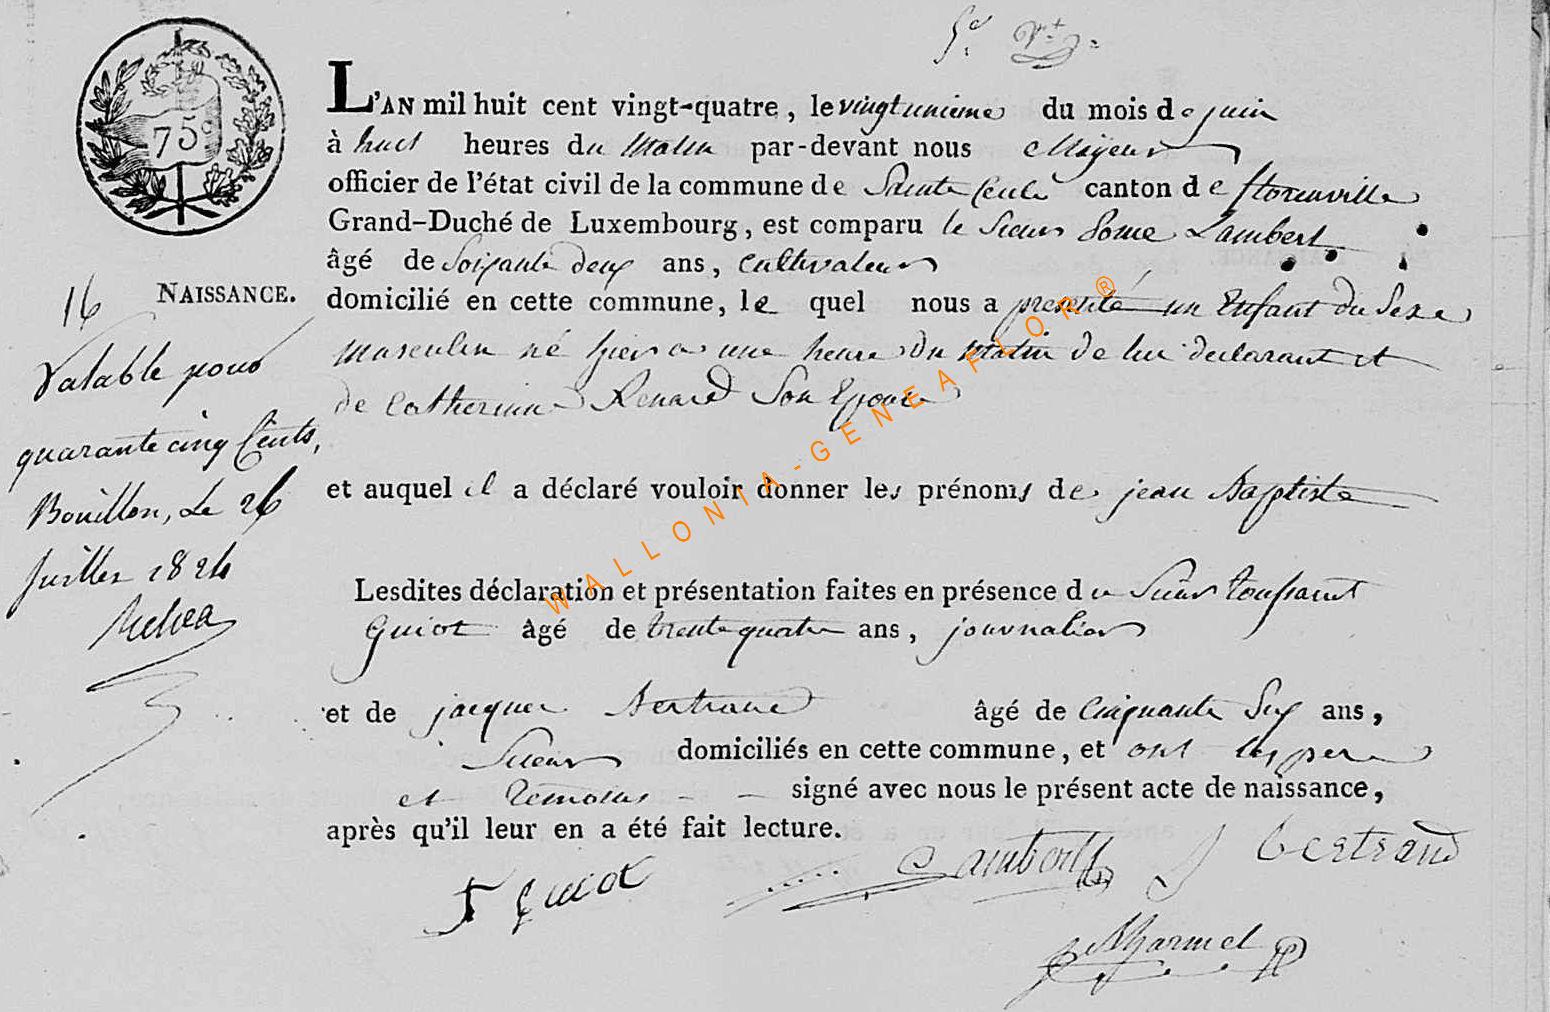 75
L'AN mil huit cent vingt-quatre, le vingtunieme du mois de juin
à huit heures du Matin par-devant nous Mayeur
officier de l'état civil de la commune de Sainte Cecile canton de florenville
Grand-Duché de Luxembourg, est comparu le Sieur Lambert
âgé de Soixante deux ans, Cultivateur
16 NAISSANCE.
domicilié en cette commune, le quel nous a presenté un Enfant du Sexe
Masculin né hier a une heure du Matin de lui declarant et
de Catherine Renard Son Epouse
Valable pour
quarante cinq Cents,
Bouillon, Le 26
Juillet 1824
et auquel il a déclaré vouloir donner les prénoms de jean Baptiste
Lesdites déclaration et présentation faites en présence du Sieur toussaint
Guiot âgé de trente quatre ans, journalier
et de jacques Bertrand âgé de Cinquante Six ans,
domiciliés en cette commune, et ont les pere
et temoins signé avec nous le présent acte de naissance,
après qu'il leur en a été fait lecture.
T Guiot Lambert J bertrand
WALLONIA-GENEAFLOR®